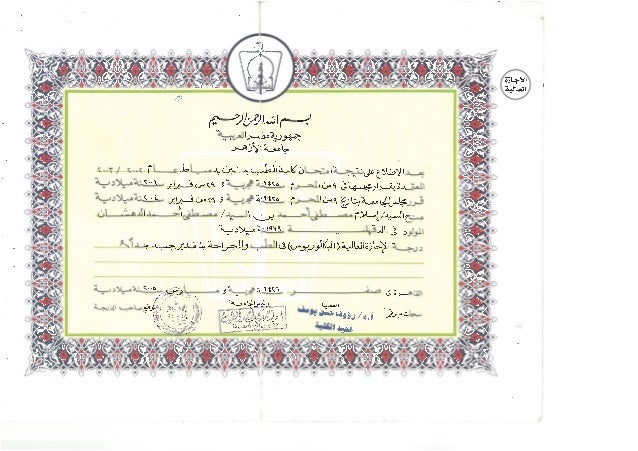 الإجازة
العالية
بسم الله الرحمن الرحيم
جمهورية مصر العربية
جامعة الأزهر
بعد الاطلاع على نتيجة امتحان كلية الطب بنين بدمياط عام ٢٠٠٢/٢٠٠٣
المعتمدة بقرار مجلسها في ٩ من المحرم ١٤٢٥ هجرية و ٢٩ من فبراير ٢٠٠٤ ميلادية
قرر مجلس الجامعة بتاريخ ٩ من المحرم ١٤٢٥ هجرية و ٢٩ من فبراير ٢٠٠٤ ميلادية
منح السيد / إسلام مصطفى أحمد بن السيد / مصطفى أحمد الدهشان
المولود في الدقهلية ١٩٧٩ ميلادية
درجة الإجازة العالية (البكالوريوس) في الطب والجراحة بتقدير جيد جدا
القاهرة في صفر ١٤٢٦ هجرية و مارس ٢٠٠٥ ميلادية
رئيس الجامعة
توقيع صاحب الدرجة
أ.د/ رؤوف حسن يوسف
عميد الكلية